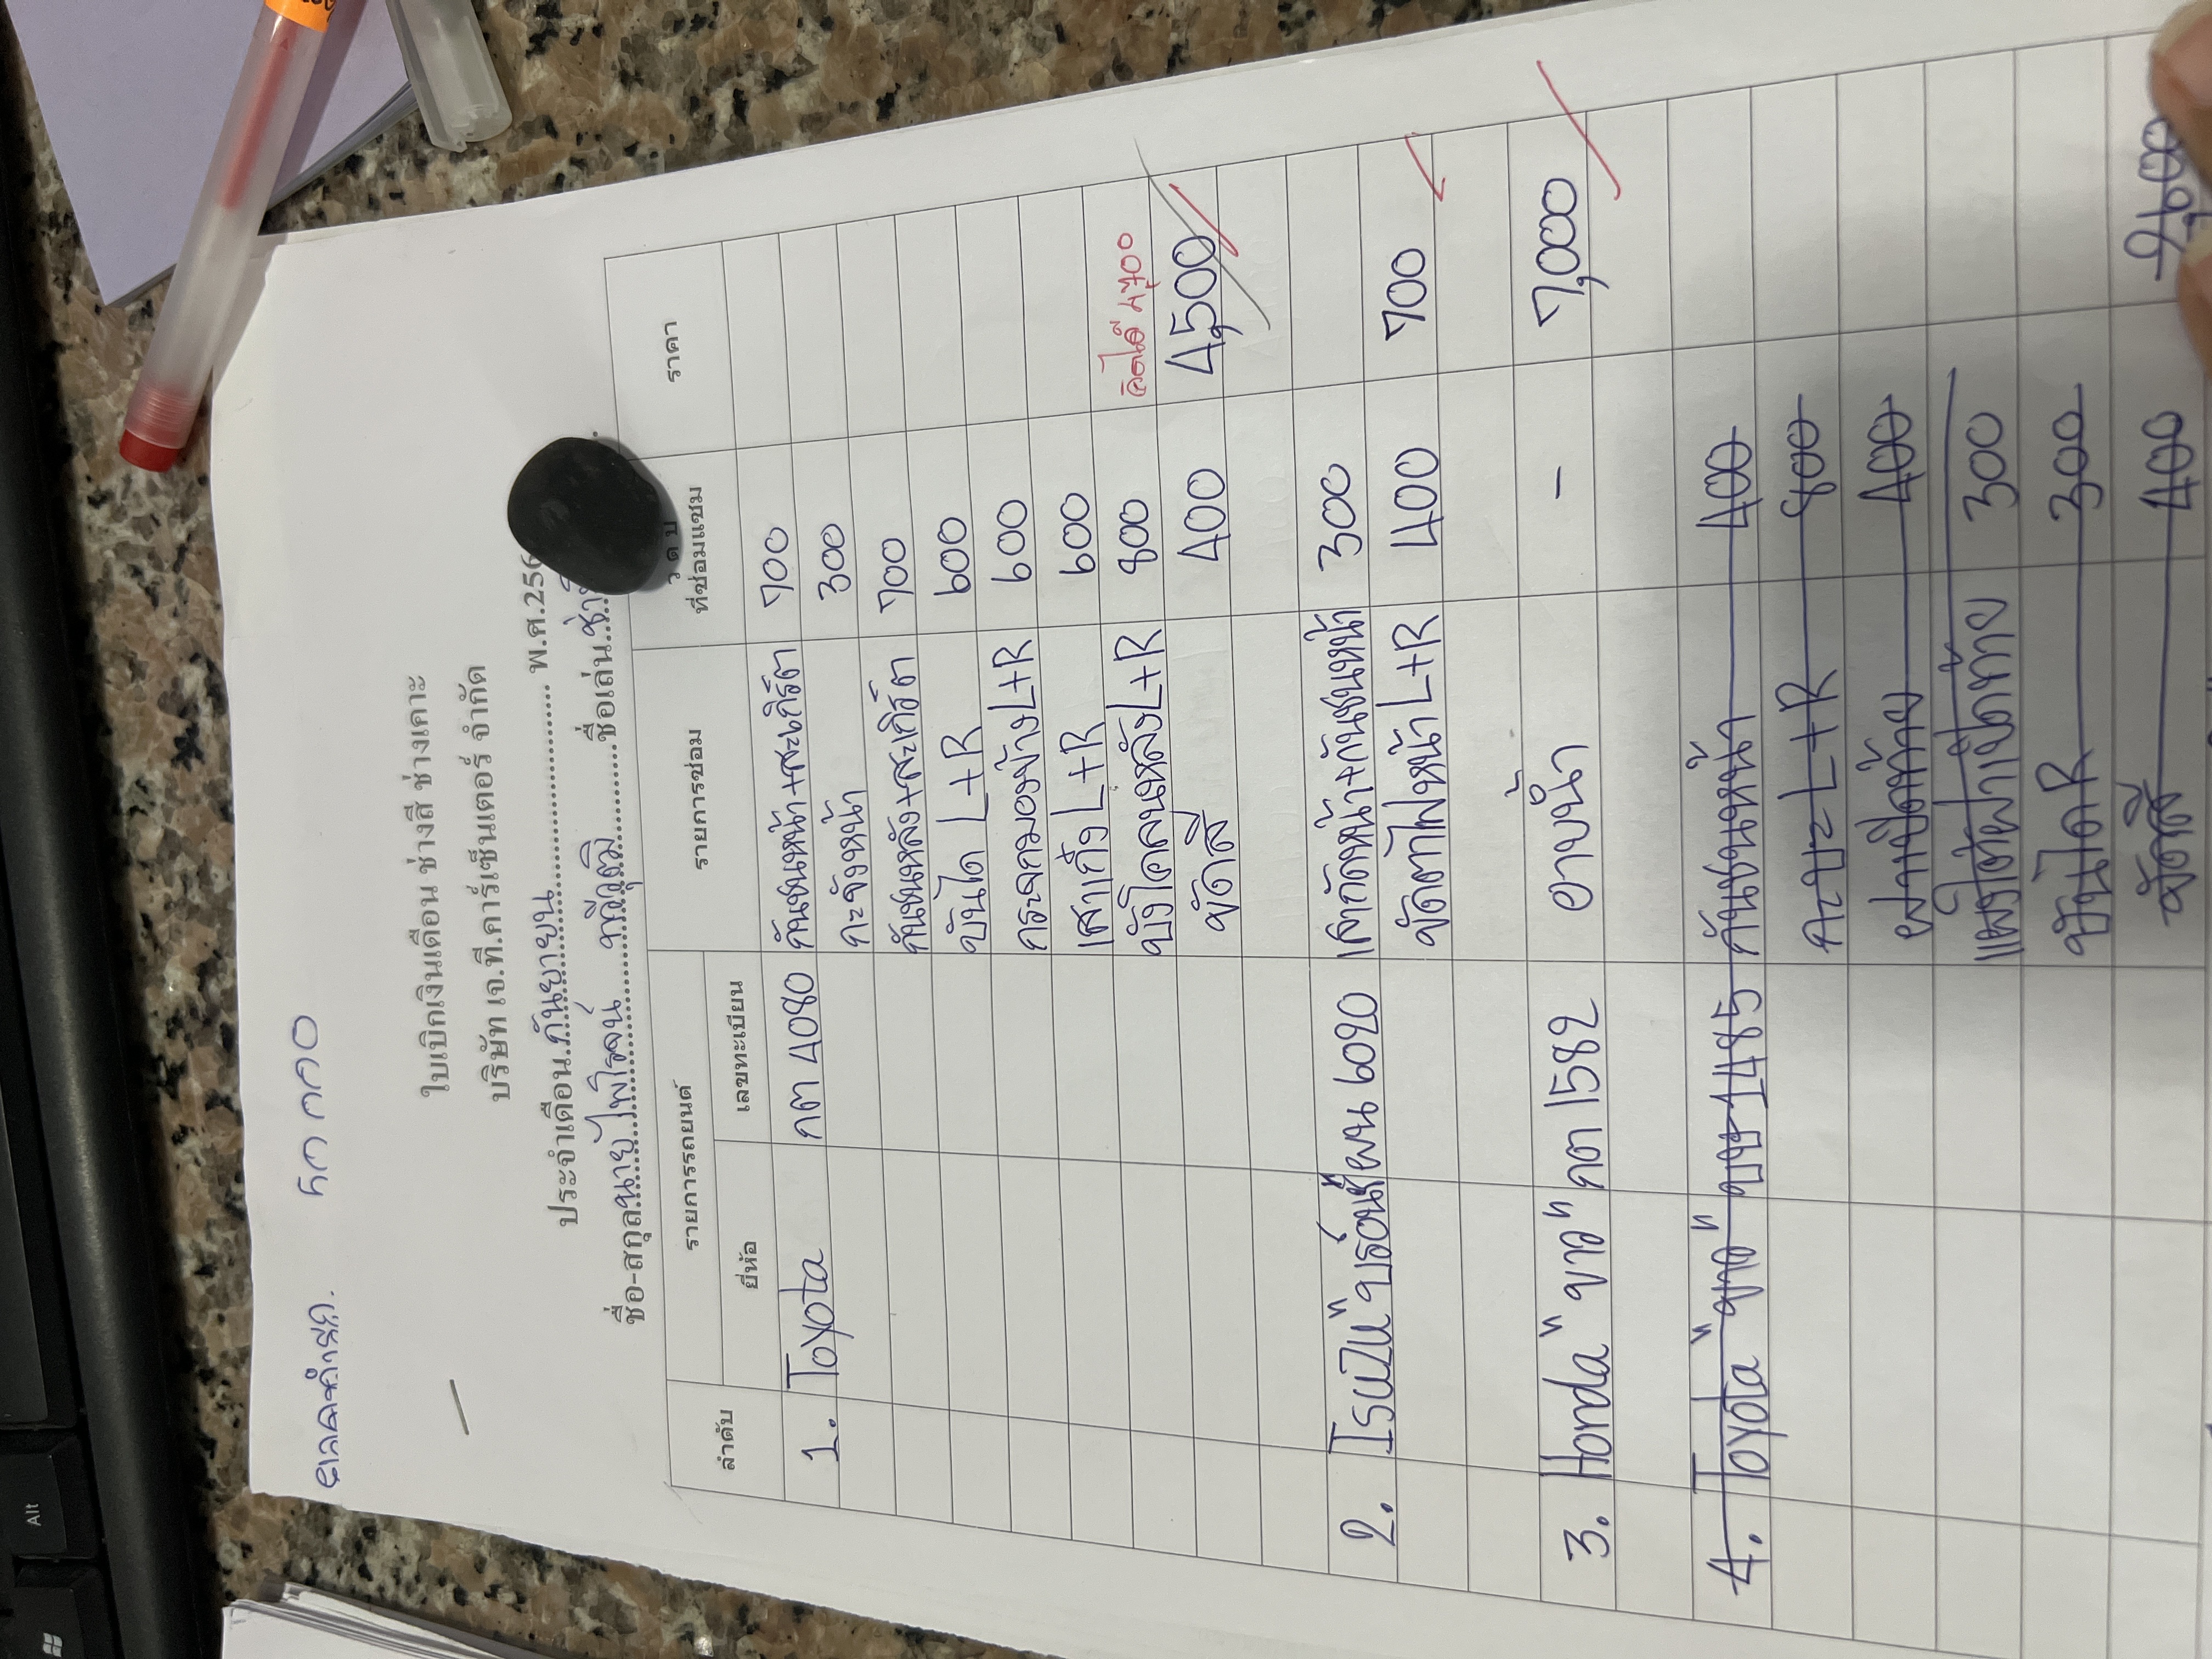 ใบเบิกเงินเดือน ช่างสี ช่างเคาะ
บริษัท เจ.ที.คาร์เซ็นเตอร์ จำกัด
ประจำเดือน กันยายน พ.ศ.256
ชื่อ-สกุล นาย ไพโรจน์ ทวีวุฒิ ชื่อเล่น ช่าง
ลำดับ รายการรถยนต์ รายการซ่อม ว ด ป ราคา
ยี่ห้อ เลขทะเบียน ที่ซ่อมแซม
1. Toyota กต 4080 กันชนหน้า+สเกิร์ต 700
กะจังหน้า 300
กันชนหลัง+สเกิร์ต 700
บันได L+R 600
กระจกมองข้าง L+R 600
เสาเก๋ง L+R 600
บังโคลนหลัง L+R 800 คิดได้ 4700
ขัดสี 400 4,500
2. "บรอนซ์" ผน 6020 เสากัดหน้า+กันชนหน้า 300
ขัดตาไฟหน้า L+R 400 700
3. Honda "ขาว" กต 1582 อาบน้ำ - 7,000
4. Toyota "ขาว" บบ 1485 กันชนหน้า 400
คะบะ L+R 800
ฝาปิดท้าย 400
แผงใต้ฝาเปิดท้าย 300
บันได R 300
ขัดสี 400 2,600
Alt